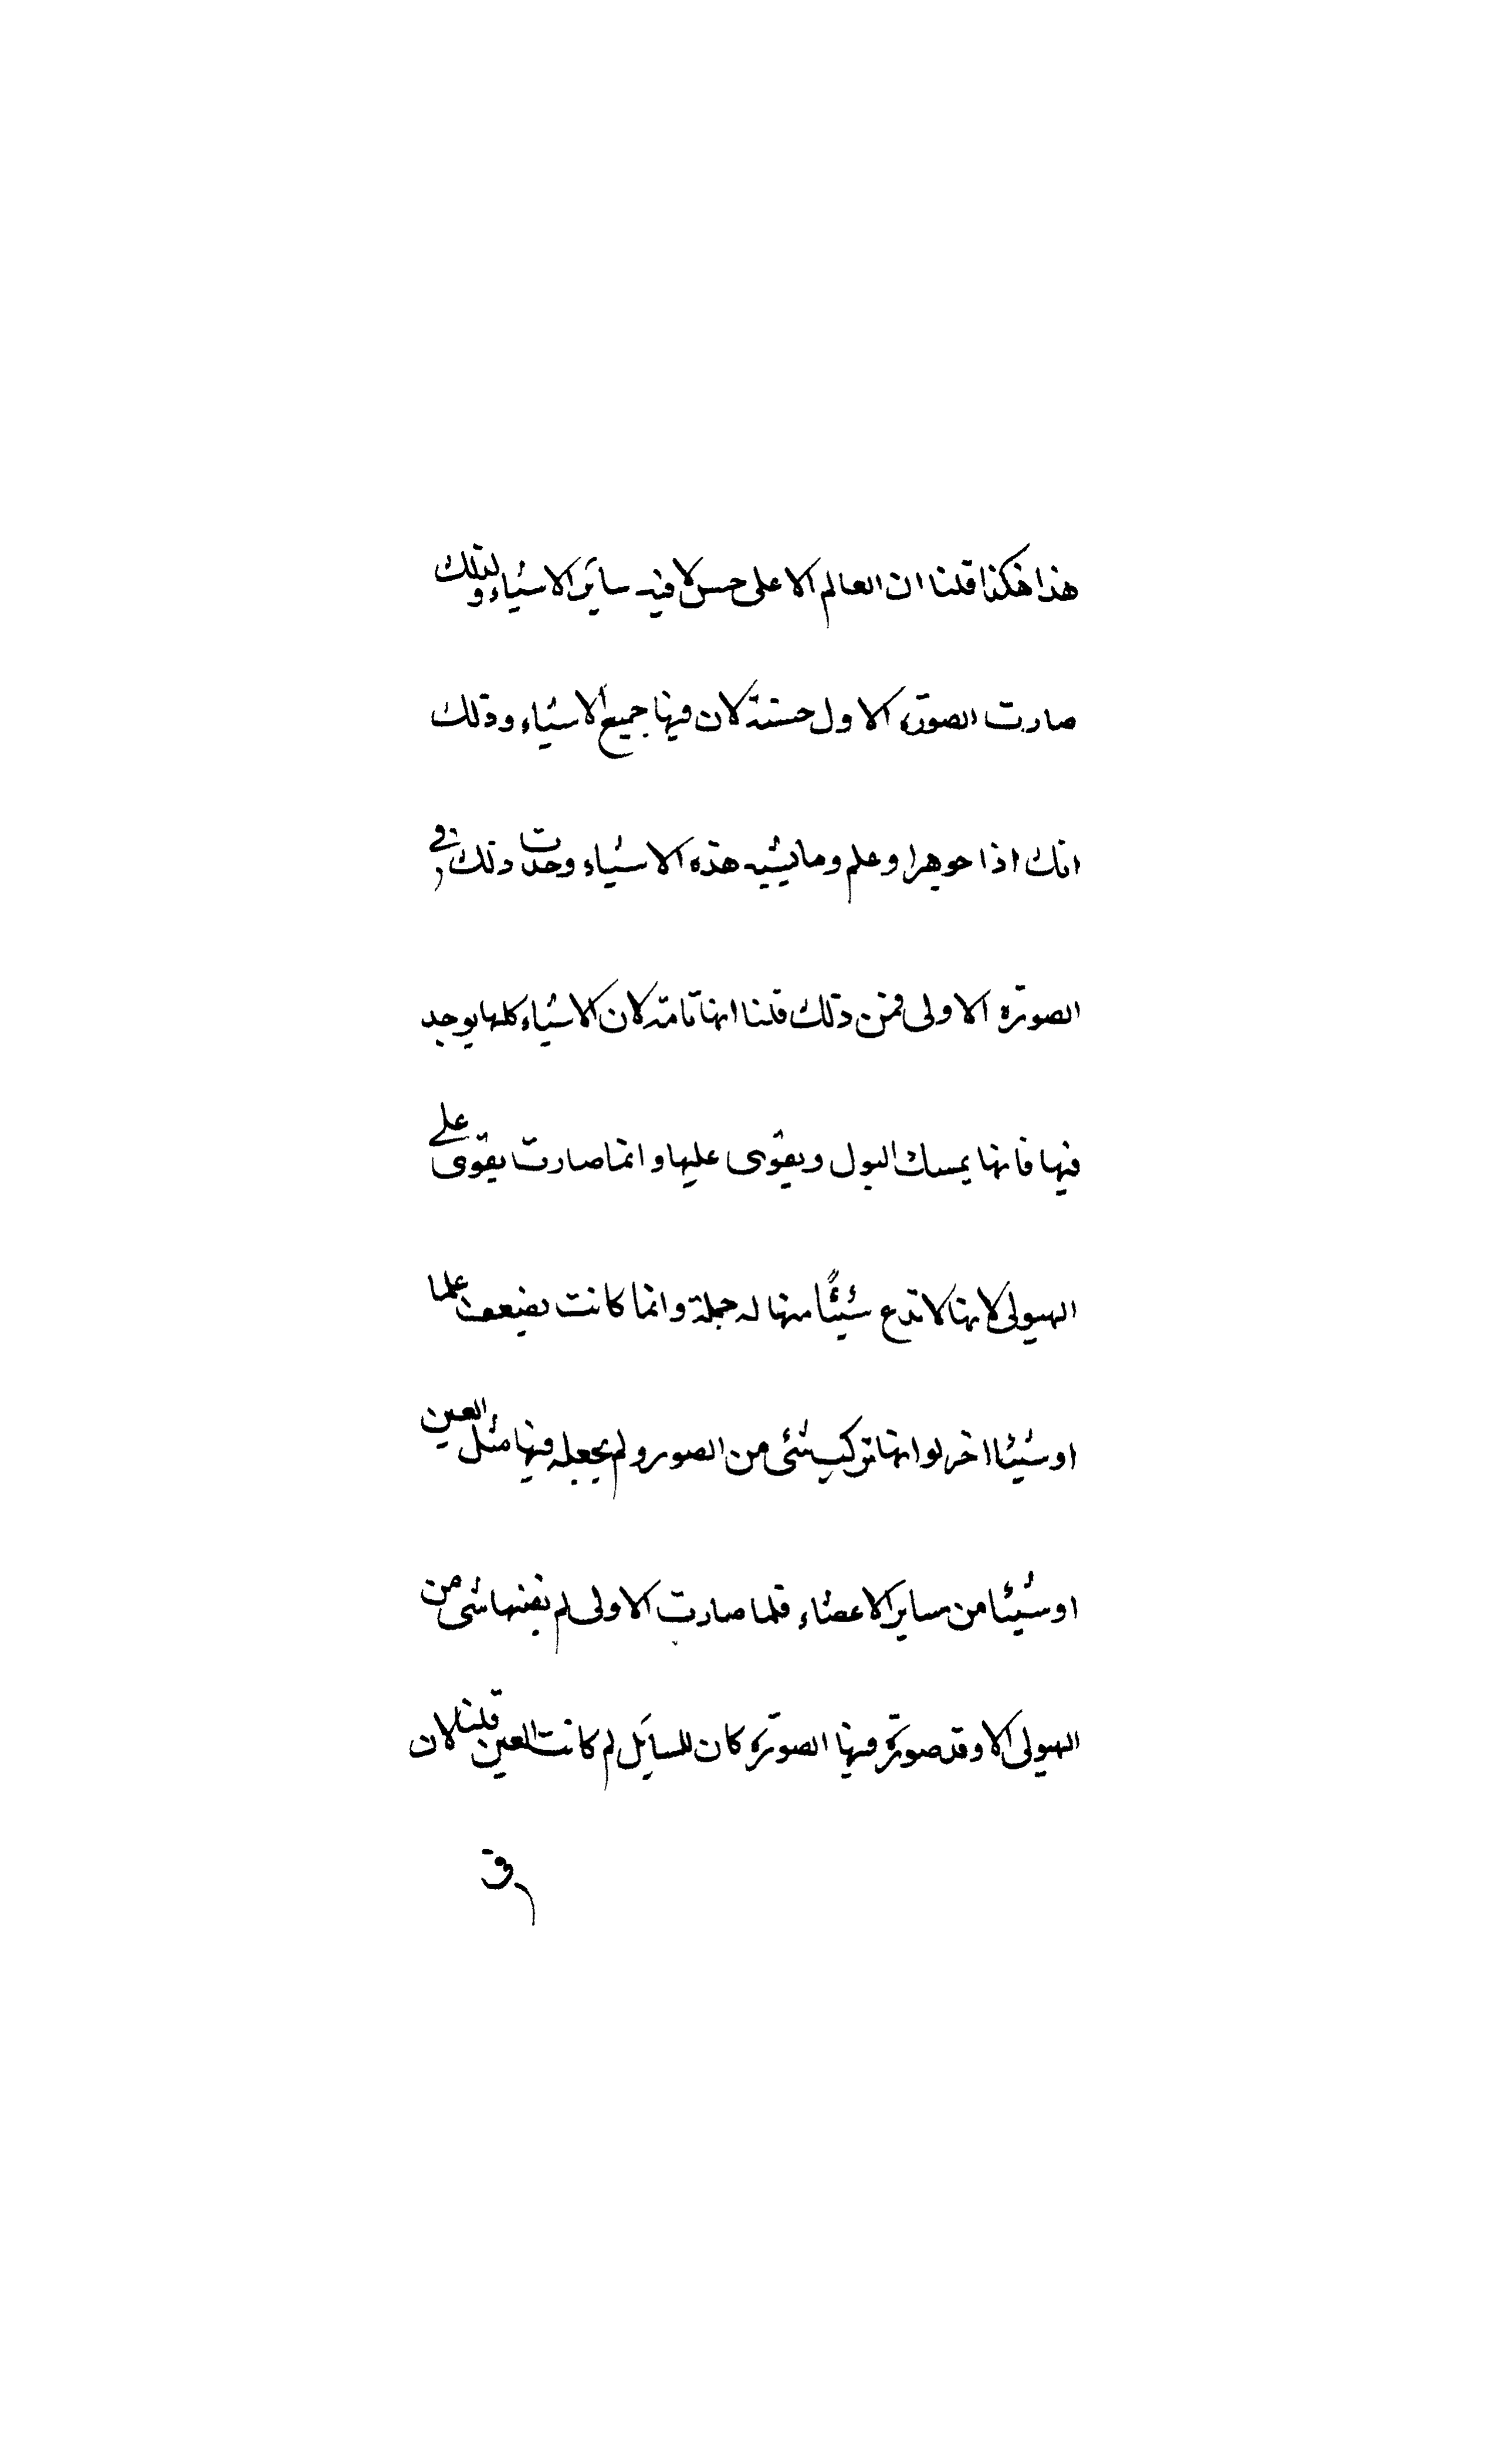 هذا هكذا قلنا ان العالم الاعلى حسن لا فيه ساير الاشياء ولذلك
صارت الصورة الاول حسنة لان فيها جميع الاشياء وذلك
انك اذا جوهرا وعلم وما يشبه هذه الاشياء وجدت ذلك في
الصورة الاولى فمن ذلك قلنا انها تامة لان الاشياء كلها يوجد
فيها فانها يمسك البول ويقوى عليها وانما صارت يقوى على
الهيولى لانها لا تدع شيئًا منها له جملة وانما كانت يضعف علما
او شيئا اخر لو انها تركب شئ من الصور ولم يجعله فيها مثل العين
او شيئا من ساير الاعضاء فلما صارت الاولى لم يفتها شى من
الهيولى الا وقد صورة فيها الصورة كان للسايل لم كانت العين قلنا لان